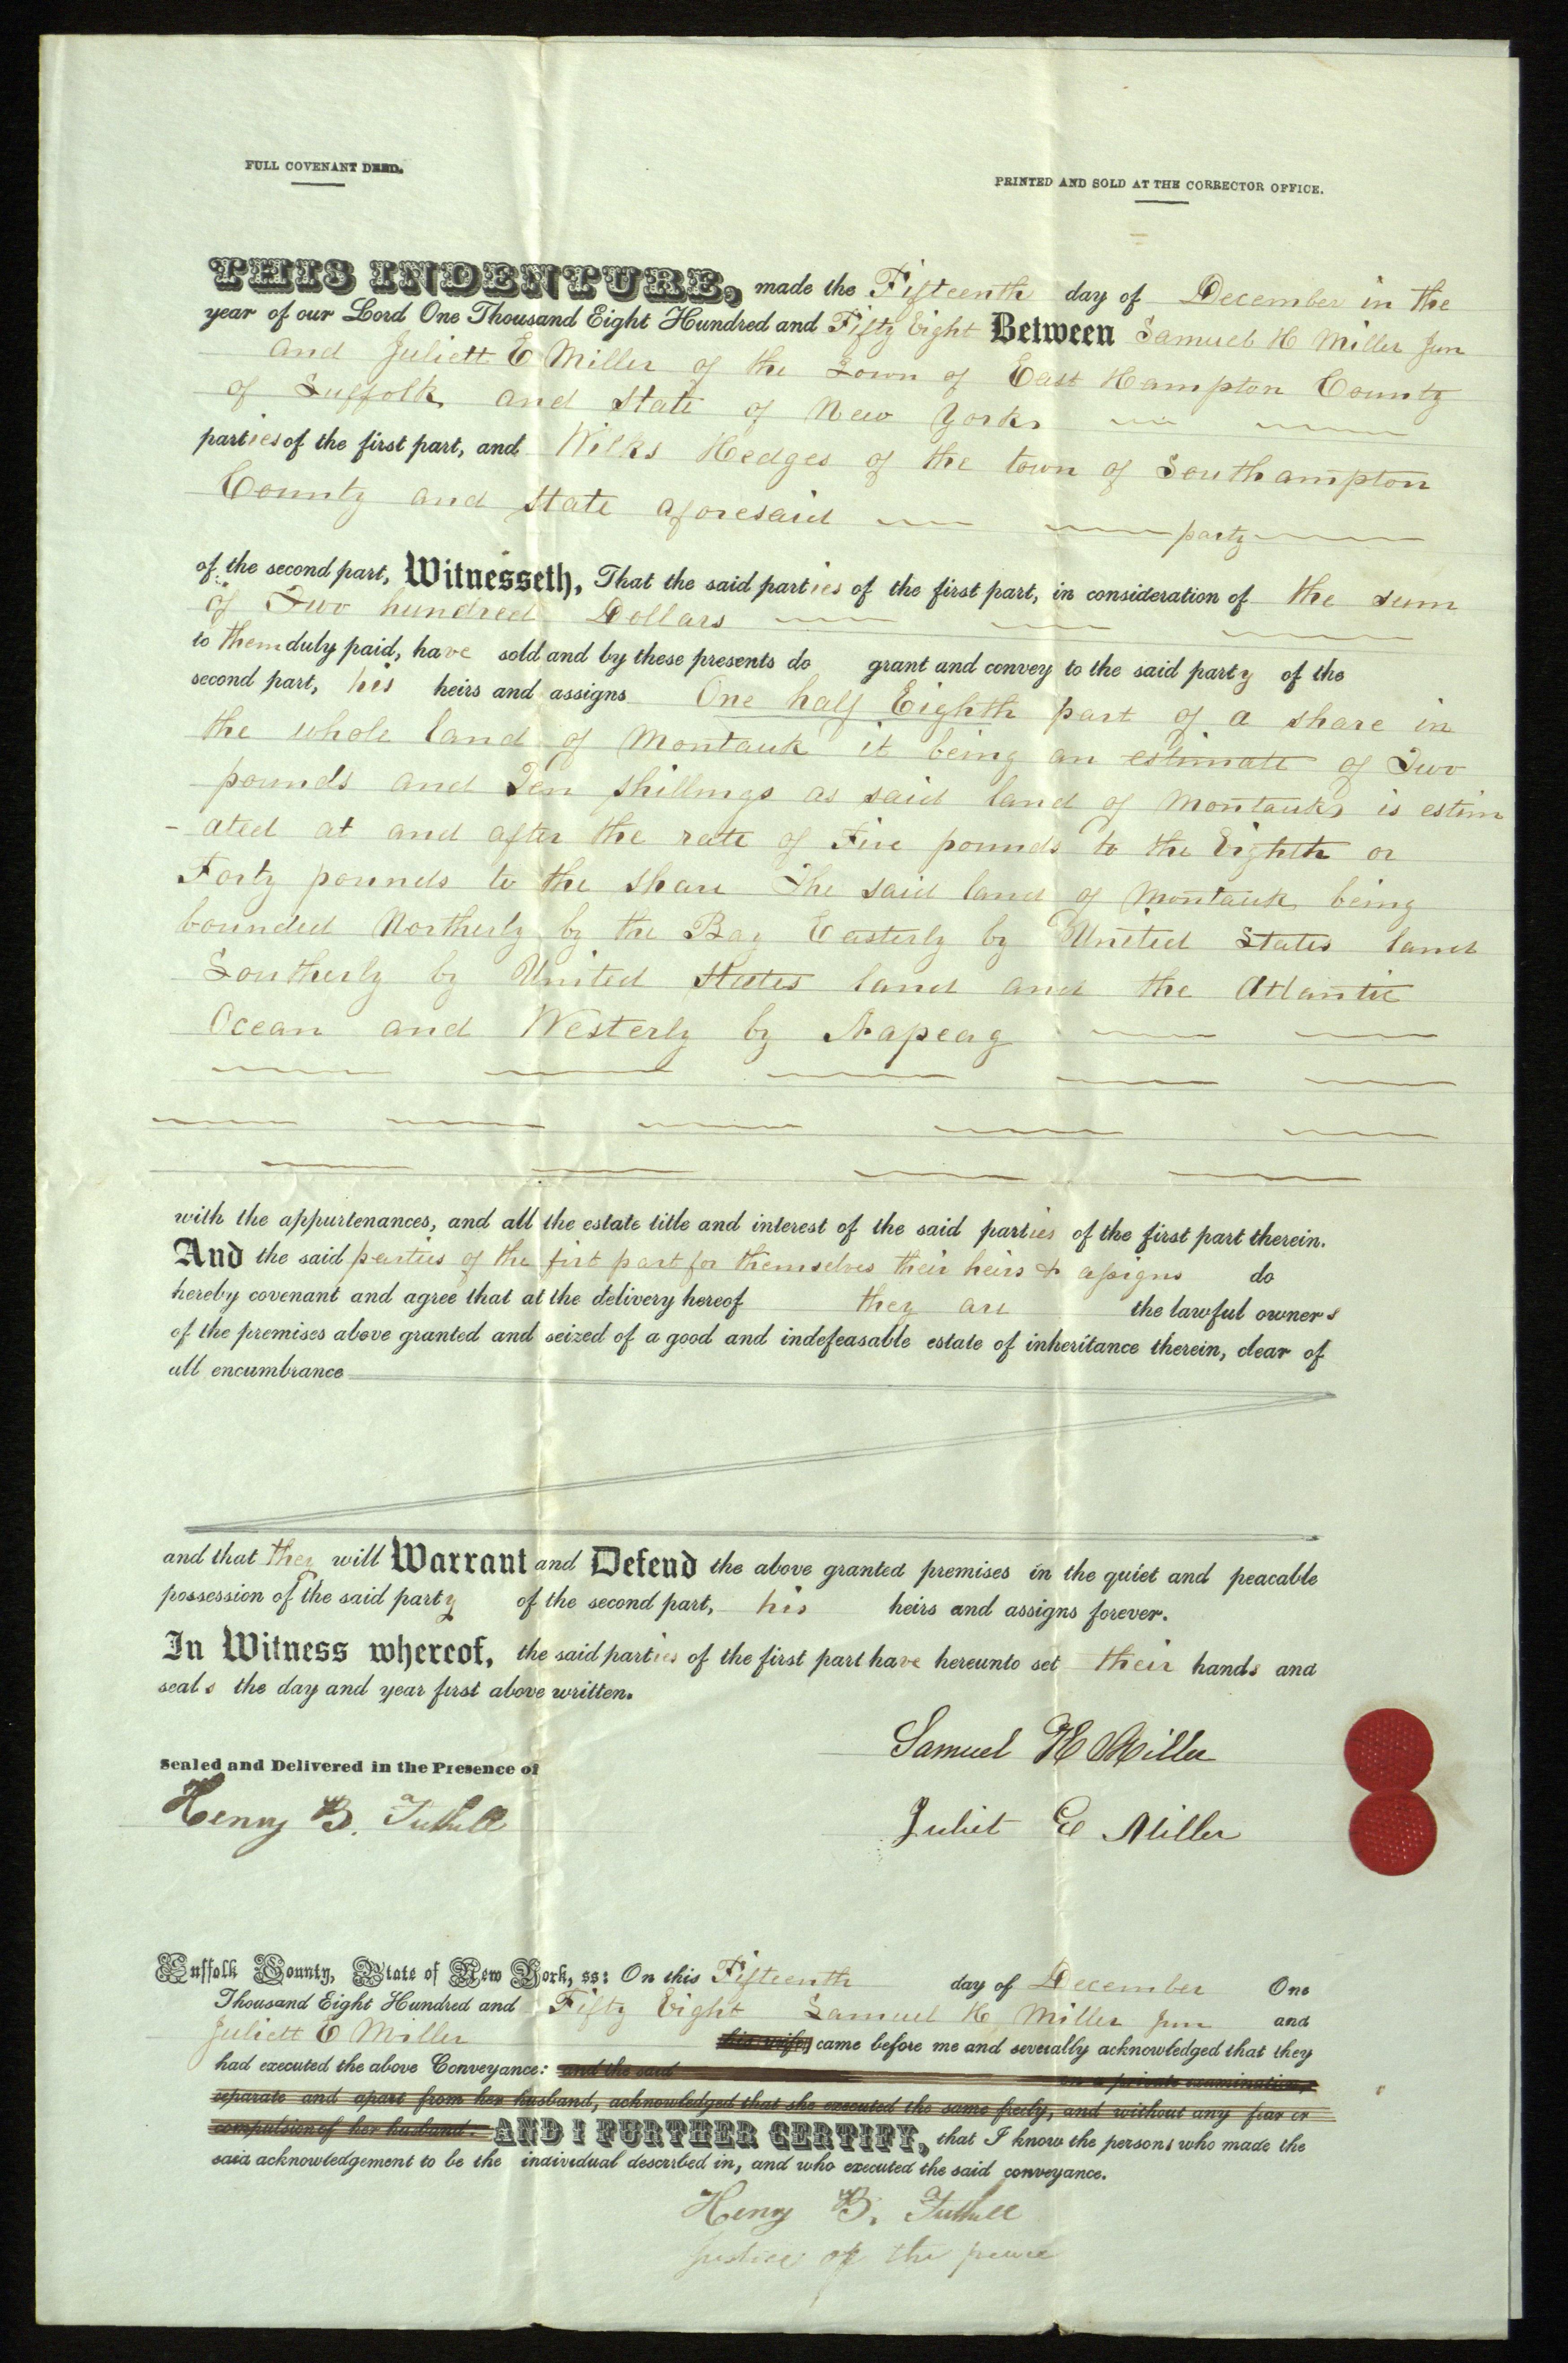 FULL COVENANT DEED.
PRINTED AND SOLD AT THE CORRECTOR OFFICE.
THIS INDENTURE, made the Fifteenth day of December in the
year of our Lord One Thousand Eight Hundred and Fifty Eight Between Samuel H Miller Jun
and Juliett E Miller of the Town of East Hampton County
of Suffolk and State of New York
parties of the first part, and Wilks Hedges of the town of Southampton
County and State aforesaid party
of the second part, Witnesseth, That the said parties of the first part, in consideration of the sum
of Two hundred Dollars
to them duly paid, have sold and by these presents do grant and convey to the said party of the
second part, his heirs and assigns One half Eighth part of a share in
the whole land of Montauk it being an estimate of Two
pounds and Ten shillings as said land of Montauk is estim
- ated at and after the rate of Five pounds to the Eighth or
Forty pounds to the share The said land of Montauk being
bounded Northerly by the Bay Easterly by United States land
Southerly by United States land and the Atlantic
Ocean and Westerly by Napeag
with the appurtenances, and all the estate title and interest of the said parties of the first part therein.
And the said parties of the firt part for themselves their heirs & assigns do
hereby covenant and agree that at the delivery hereof they are the lawful owners
of the premises above granted and seized of a good and indefeasable estate of inheritance therein, clear of
all encumbrance
and that they will Warrant and Defend the above granted premises in the quiet and peacable
possession of the said party of the second part, his heirs and assigns forever.
In Witness whereof, the said parties of the first part have hereunto set their hands and
seals the day and year first above written.
Samuel H Miller
Sealed and Delivered in the Presence of
Henry B. Tuthill
Juliet E Miller
Suffolk County, State of New York, ss: On this Fifteenth day of December One
Thousand Eight Hundred and Fifty Eight Samuel H Miller Jun and
Juliett E Miller his wife, came before me and severally acknowledged that they
had executed the above Conveyance: and the said on a private examination,
separate and apart from her husband, acknowledged that she executed the same freely, and without any fear or
compulsion of her husband. AND I FURTHER CERTIFY, that I know the persons who made the
said acknowledgement to be the individual described in, and who executed the said conveyance.
Henry B. Tuthill
Justice of the peace